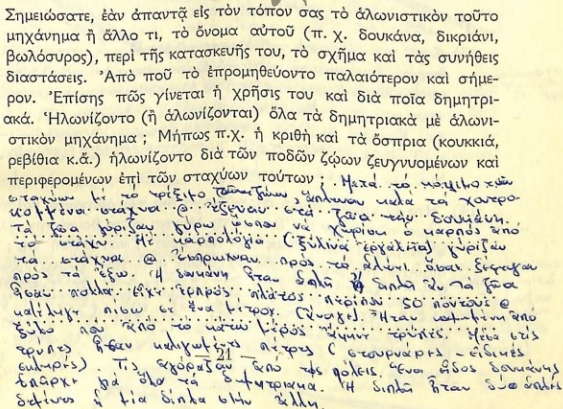 Σημειώσατε, ἐὰν ἀπαντᾷ εἰς τὸν τόπον σας τὸ ἁλωνιστικὸν τοῦτο
μηχάνημα ἢ ἄλλο τι, τὸ ὄνομα αὐτοῦ (π. χ. δουκάνα, δικριάνι,
βωλόσυρος), περὶ τῆς κατασκευῆς του, τὸ σχῆμα καὶ τὰς συνήθεις
διαστάσεις. Ἀπὸ ποῦ τὸ ἐπρομηθεύοντο παλαιότερον καὶ σήμε-
ρον. Ἐπίσης πῶς γίνεται ἡ χρῆσις του καὶ διὰ ποῖα δημητρι-
ακά. Ἡλωνίζοντο (ἢ ἁλωνίζονται) ὅλα τὰ δημητριακὰ μὲ ἁλωνι-
στικὸν μηχάνημα ; Μήπως π.χ. ἡ κριθὴ καὶ τὰ ὄσπρια (κουκκιά,
ρεβίθια κ.ἄ.) ἡλωνίζοντο διὰ τῶν ποδῶν ζῴων ζευγνυομένων καὶ
περιφερομένων ἐπὶ τῶν σταχύων τούτων ; Μετά τό κόψιμο των
σταχύων με το τρίξιμο άπλωναν καλά τά χοντρο
κομμένα στάχυα @ έζευαν στά ζώα την δουκάνη.
Τά ζώα γύριζαν γύρω να χωρίσει ο καρπός από
το στάχυ. Με καρπολόγια (ξύλινα εργαλεία) γύριζαν
τα στάχυα @ έσπρωχναν προς το αλώνι όσα ξέφευγαν
προς τα έξω. Η δουκάνη ήταν διπλή ή διπλά αν τα ζώα
ήσαν πολλά. Είχε εμπρός πλάτος περίπου 50 πόντους @
κατέληγε πίσω σε ένα μέτρο. Ήταν καμωμένη από
ξύλο που από το κάτω μέρος είχαν τρύπες. Μέσα στις
τρύπες ήσαν πέτρες (στουρνάρες - ειδικές
σκληρές). Τις αγόραζαν από τις πόλεις. Ένα είδος δουκάνης
υπήρχε γιά όλα τα δημητριακά. Η διπλή ήταν δύο απλές
δεμένες η μία δίπλα στην άλλη.
— 21 —